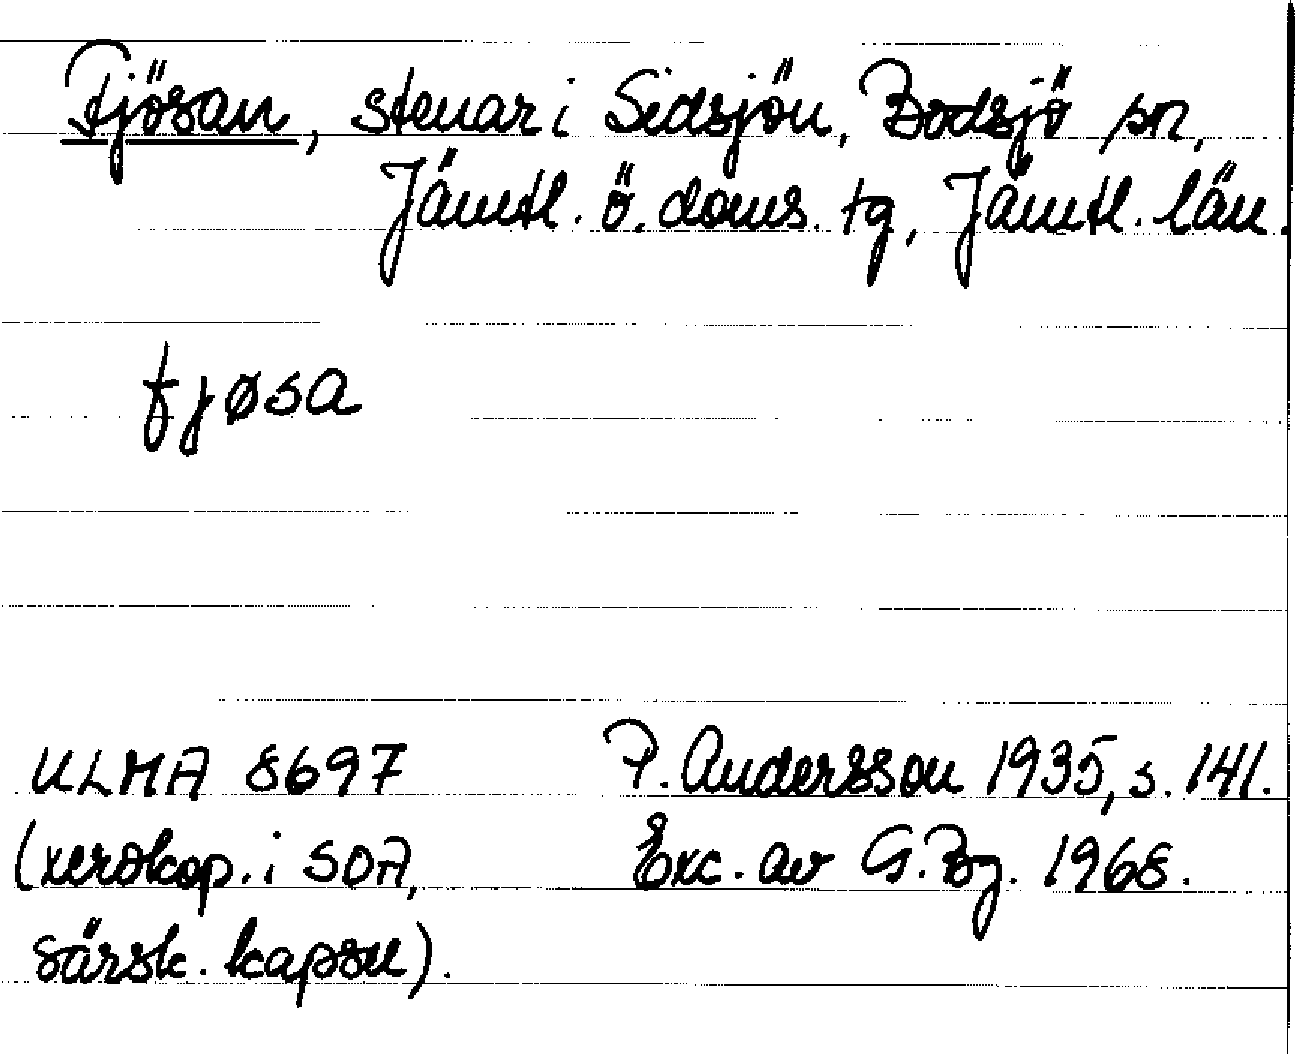 Fjösan, stenar i Sidsjön, Bodsjö sn,
Jämtl. ö. doms. tg, Jämtl. län.
fjøsa
ULMA 8697 P. Andersson 1935, s. 141.
(xerokop. i SOA, Exc. av G. Bg. 1968.
särsk. kapsel).